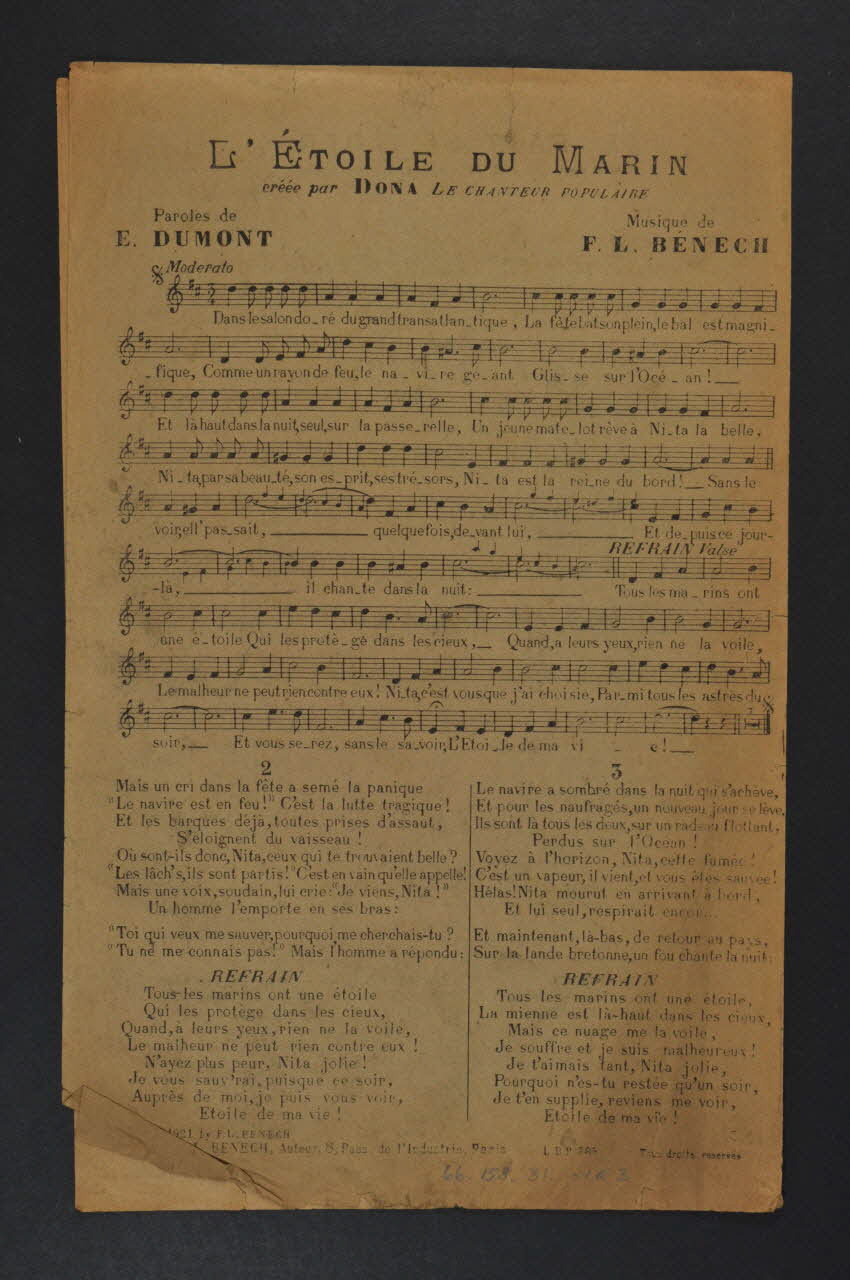 L'ÉTOILE DU MARIN
créée par DONA LE CHANTEUR POPULAIRE
Paroles de
E. DUMONT
Musique de
F. L. BÉNECH
Moderato
Dans le salon do_ré du grand transatlan_tique, La fête bat son plein, le bal est magni_
_fique, Comme un rayon de feu, le na_vi_re ge_ant Glis_se sur l'Océ_an!
Et là haut dans la nuit, seul, sur la passe_relle, Un jeune mate_lot rêve à Ni_ta la belle,
Ni_ta, par sa beau_té, son es_prit, ses tré_sors, Ni_ta est la rei_ne du bord! Sans le
voir, ell' pas_sait, quelque fois, de_vant lui, Et de_puis ce jour-
REFRAIN Valse
-là, il chan_te dans la nuit: Tous les ma_rins ont
une é_toile Qui les protè_ge dans les cieux, Quand, a leurs yeux, rien ne la voile,
Le malheur ne peut rien contre eux! Ni_ta, c'est vous que j'ai choi sie, Par_mi tous les astres du
soir, Et vous se_rez, sans le sa_voir, L'Etoi_le de ma vi_e!
2
Mais un cri dans la fête a semé la panique
"Le navire est en feu!" C'est la lutte tragique!
Et les barques déjà, toutes prises d'assaut,
S'eloignent du vaisseau!
Où sont-ils donc, Nita, ceux qui te trouvaient belle?
"Les lâch's, ils sont partis!" C'est en vain qu'elle appelle!
Mais une voix, soudain, lui crie: "Je viens, Nita!"
Un homme l'emporte en ses bras:
"Toi qui veux me sauver, pourquoi me cherchais-tu?
"Tu ne me connais pas!" Mais l'homme a répondu:
REFRAIN
Tous les marins ont une étoile
Qui les protège dans les cieux,
Quand, a leurs yeux, rien ne la voile,
Le malheur ne peut rien contre eux!
N'ayez plus peur, Nita jolie!
Je vous sauv'rai, puisque ce soir,
Auprès de moi, je puis vous voir,
Etoile de ma vie!
3
Le navire a sombré dans la nuit qui s'achève,
Et pour les naufragés, un nouveau jour se lève,
Ils sont là tous les deux, sur un radeau flottant,
Perdus sur l'Ocean!
Voyez à l'horizon, Nita, cette fumée!
C'est un vapeur, il vient, et vous êtes sauvée!
Hélas! Nita mourut en arrivant à bord,
Et lui seul, respirait encor...
Et maintenant, là-bas, de retour au pays,
Sur la lande bretonne, un fou chante la nuit:
REFRAIN
Tous les marins ont une étoile,
La mienne est là-haut dans les cieux,
Mais ce nuage me la voile,
Je souffre et je suis malheureux!
Je t'aimais tant, Nita jolie,
Pourquoi n'es-tu restée qu'un soir,
Je t'en supplie, reviens me voir,
Etoile de ma vie!
1921 by F.L. BENECH
BENECH, Auteur, 8, Pass. de l'Industrie, Paris L.B.P. Tous droits réservés
66. 158. 31.